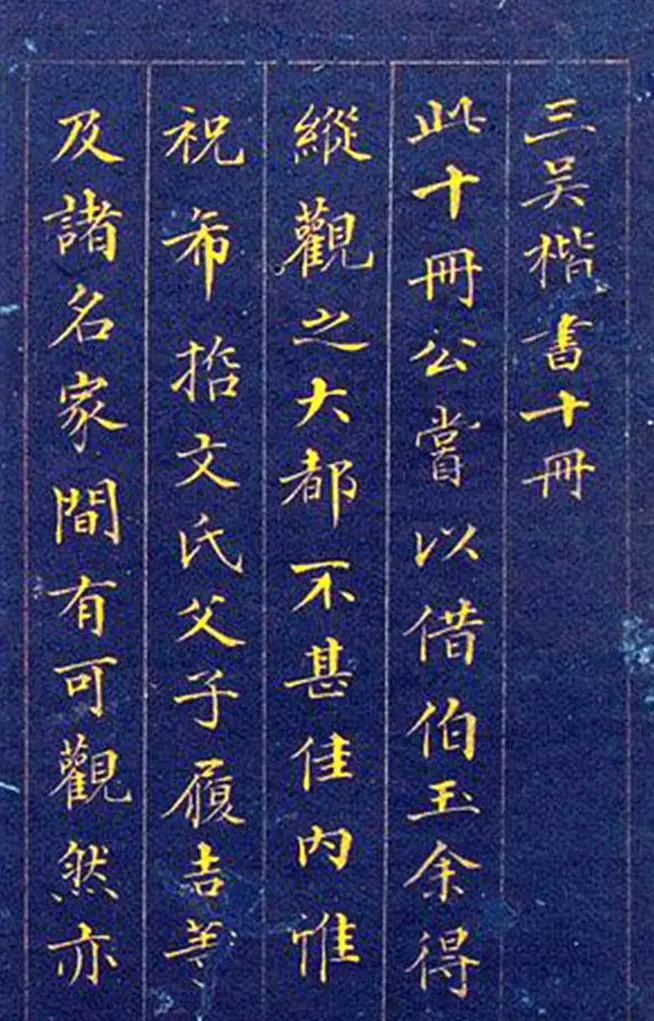 三吴楷書十冊
此十冊公嘗以借伯玉余得
縱觀之大都不甚佳内惟
祝希哲文氏父子履吉差
及諸名家間有可觀然亦